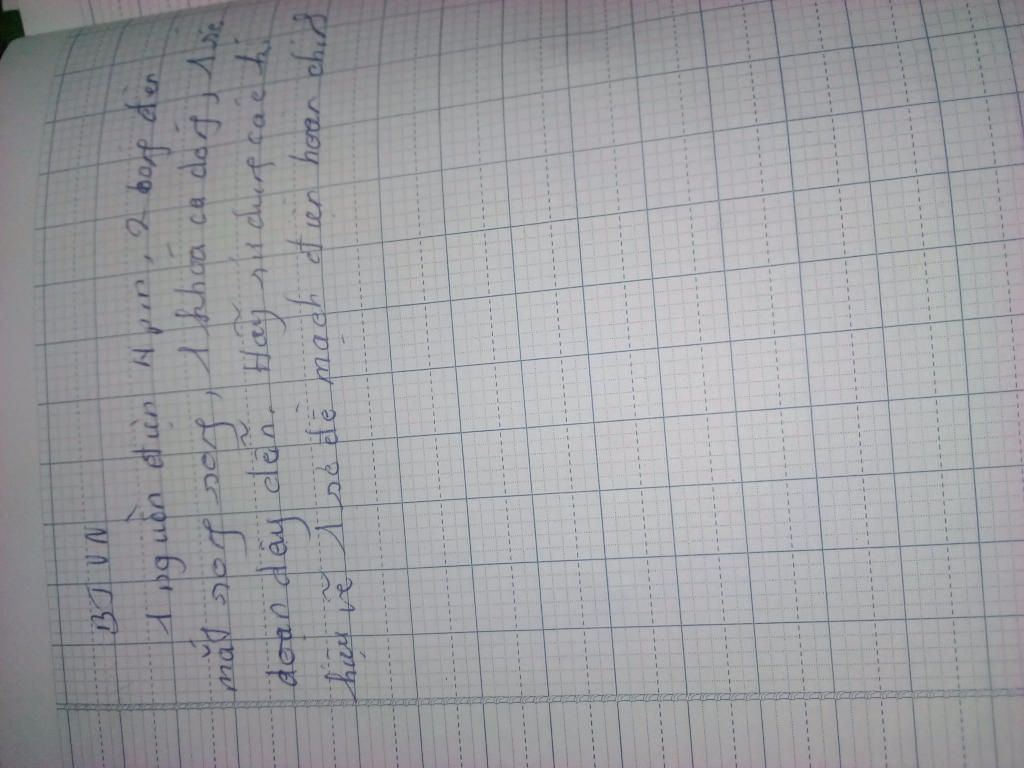 BTVN
1 nguồn điện 4 pin, 2 bóng đèn
mắc song song, 1 khóa ca đóng, 1 số
đoạn dây dẫn. Hãy sử dụng các kí
hiệu vẽ 1 sơ đồ mạch điện hoàn chỉnh